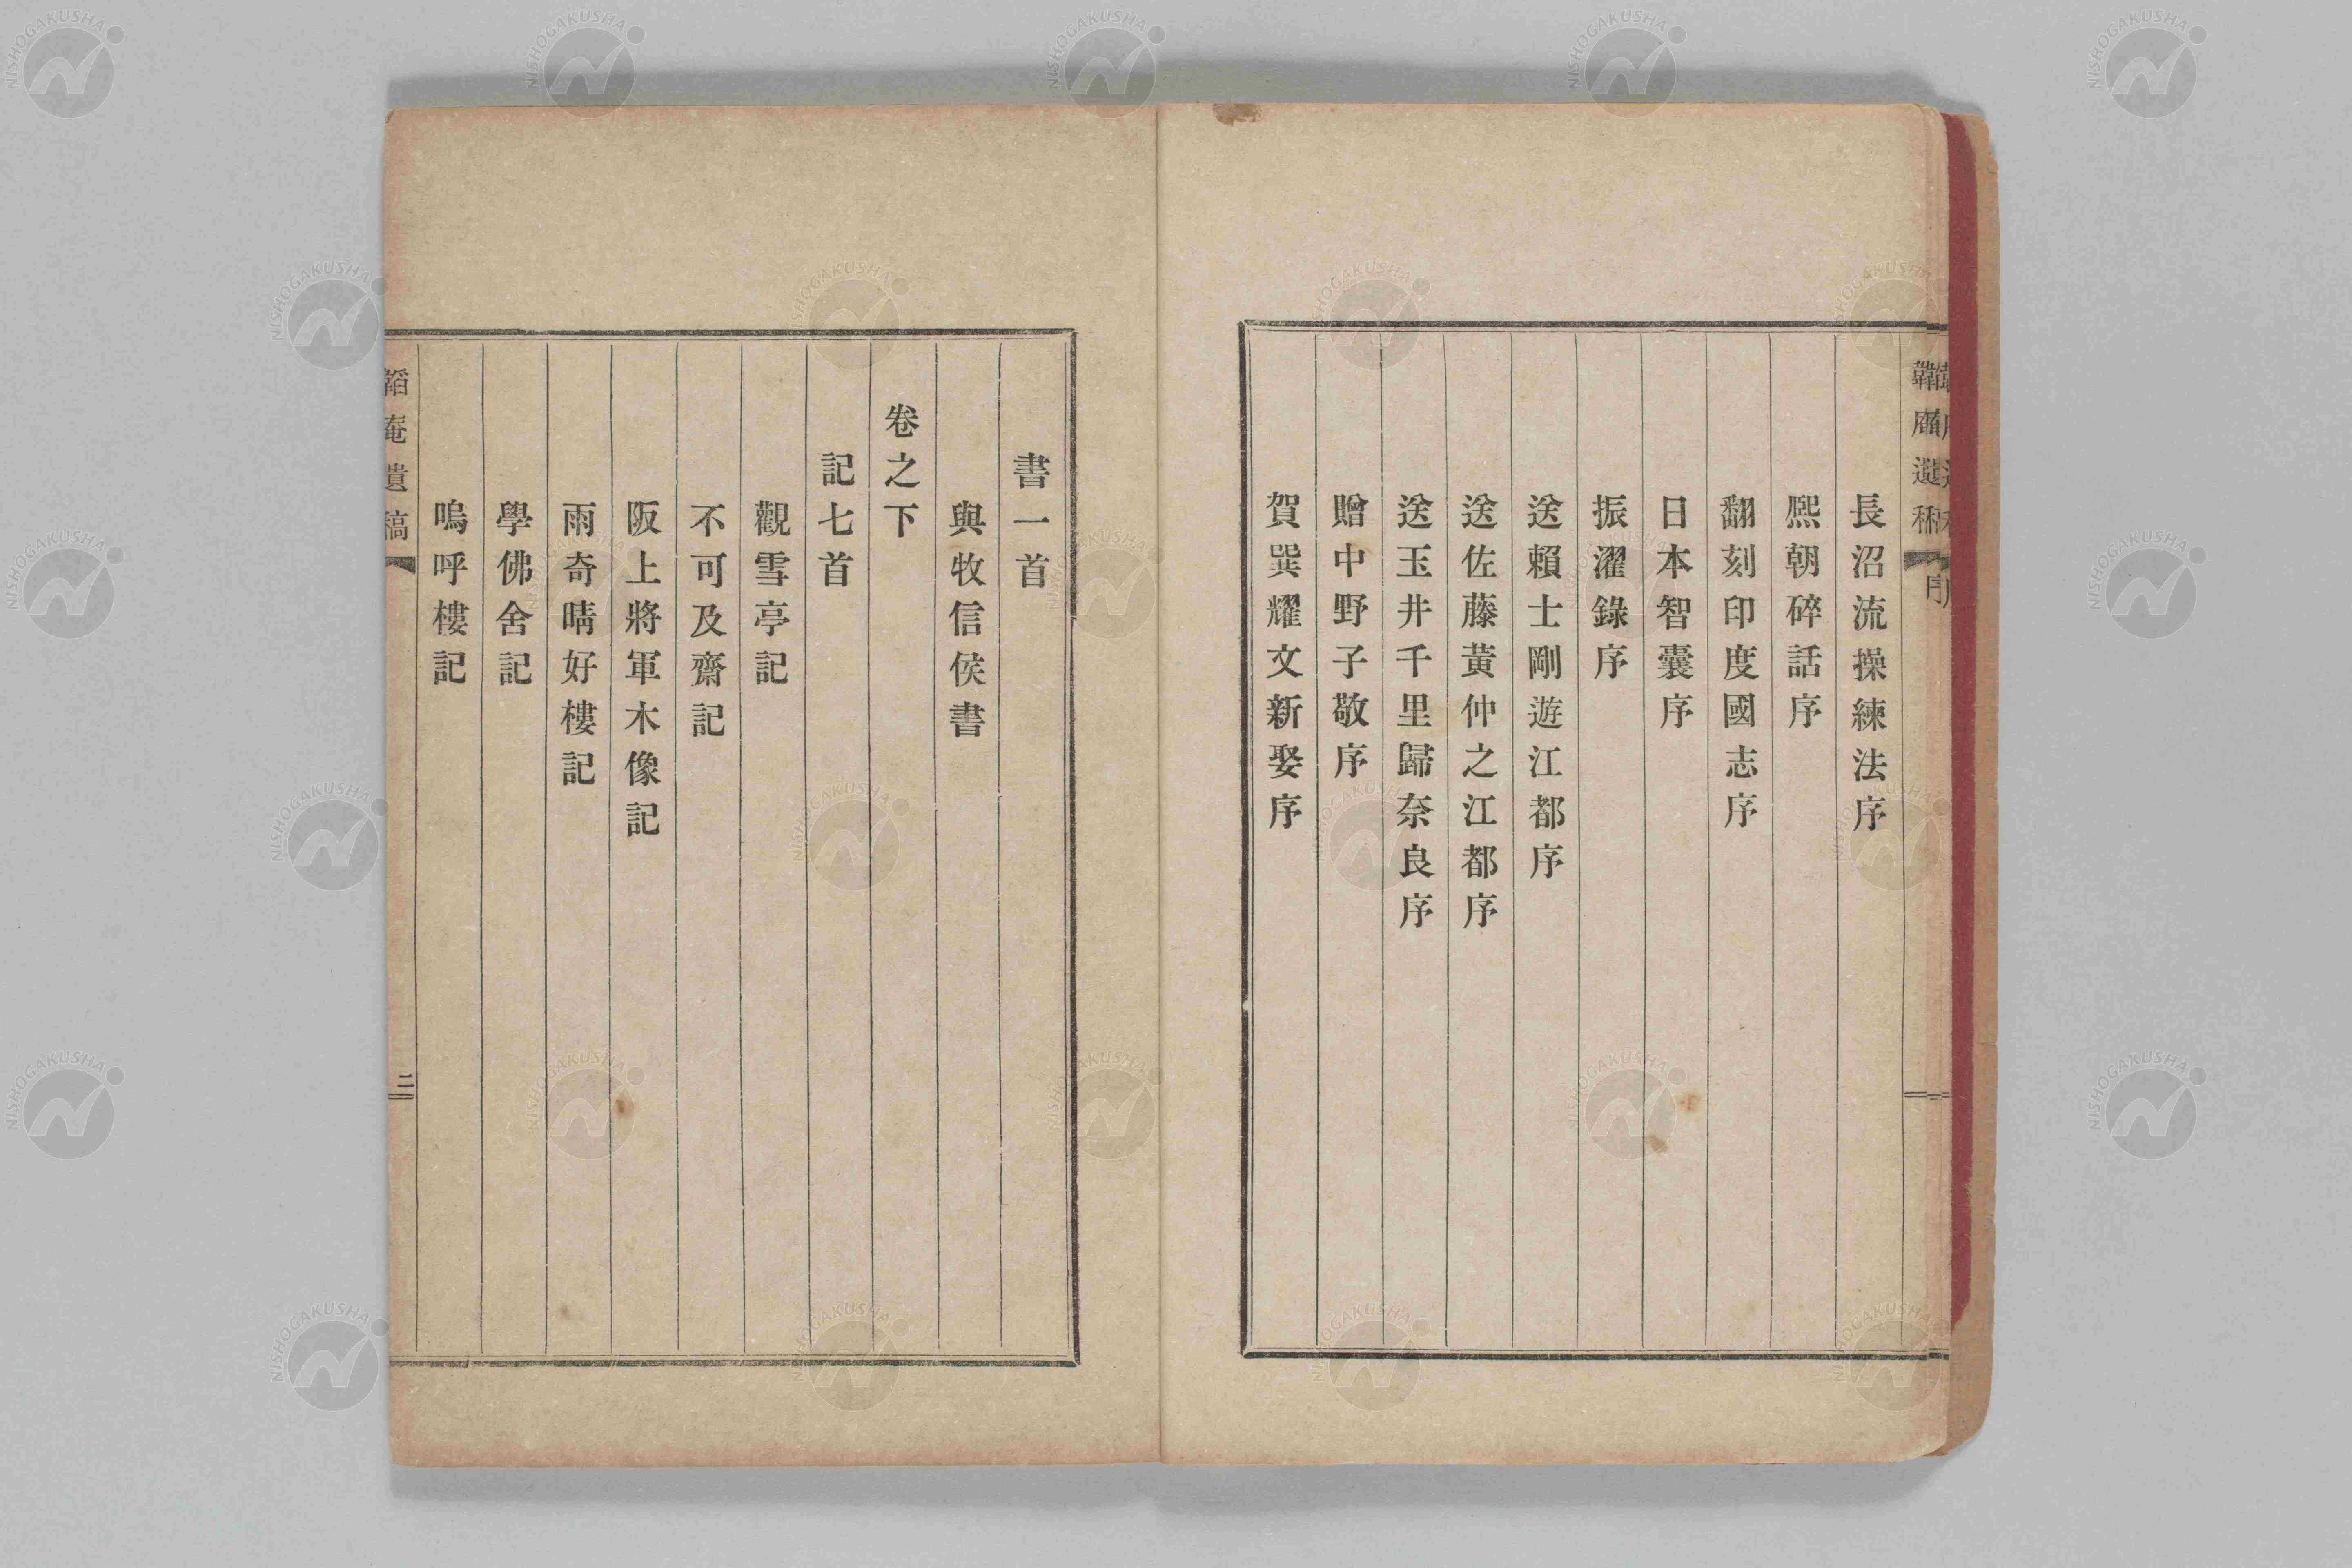 長沼流操練法序
熈朝碎話序
翻刻印度國志序
日本智囊序
振濯錄序
送賴士剛遊江都序
送佐藤黃仲之江都序
送玉井千里歸奈良序
贈中野子敬序
賀巽耀文新娶序
書一首
與牧信侯書
卷之下
記七首
觀雪亭記
不可及齋記
阪上將軍木像記
雨奇晴好樓記
學佛舍記
嗚呼樓記
韜庵遺稿
二
NISHOGAKUSHA